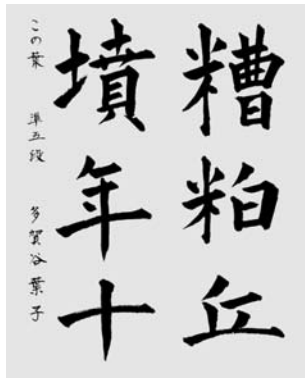 糟粕丘
墳年十
この葉 準五段 多賀谷葉子